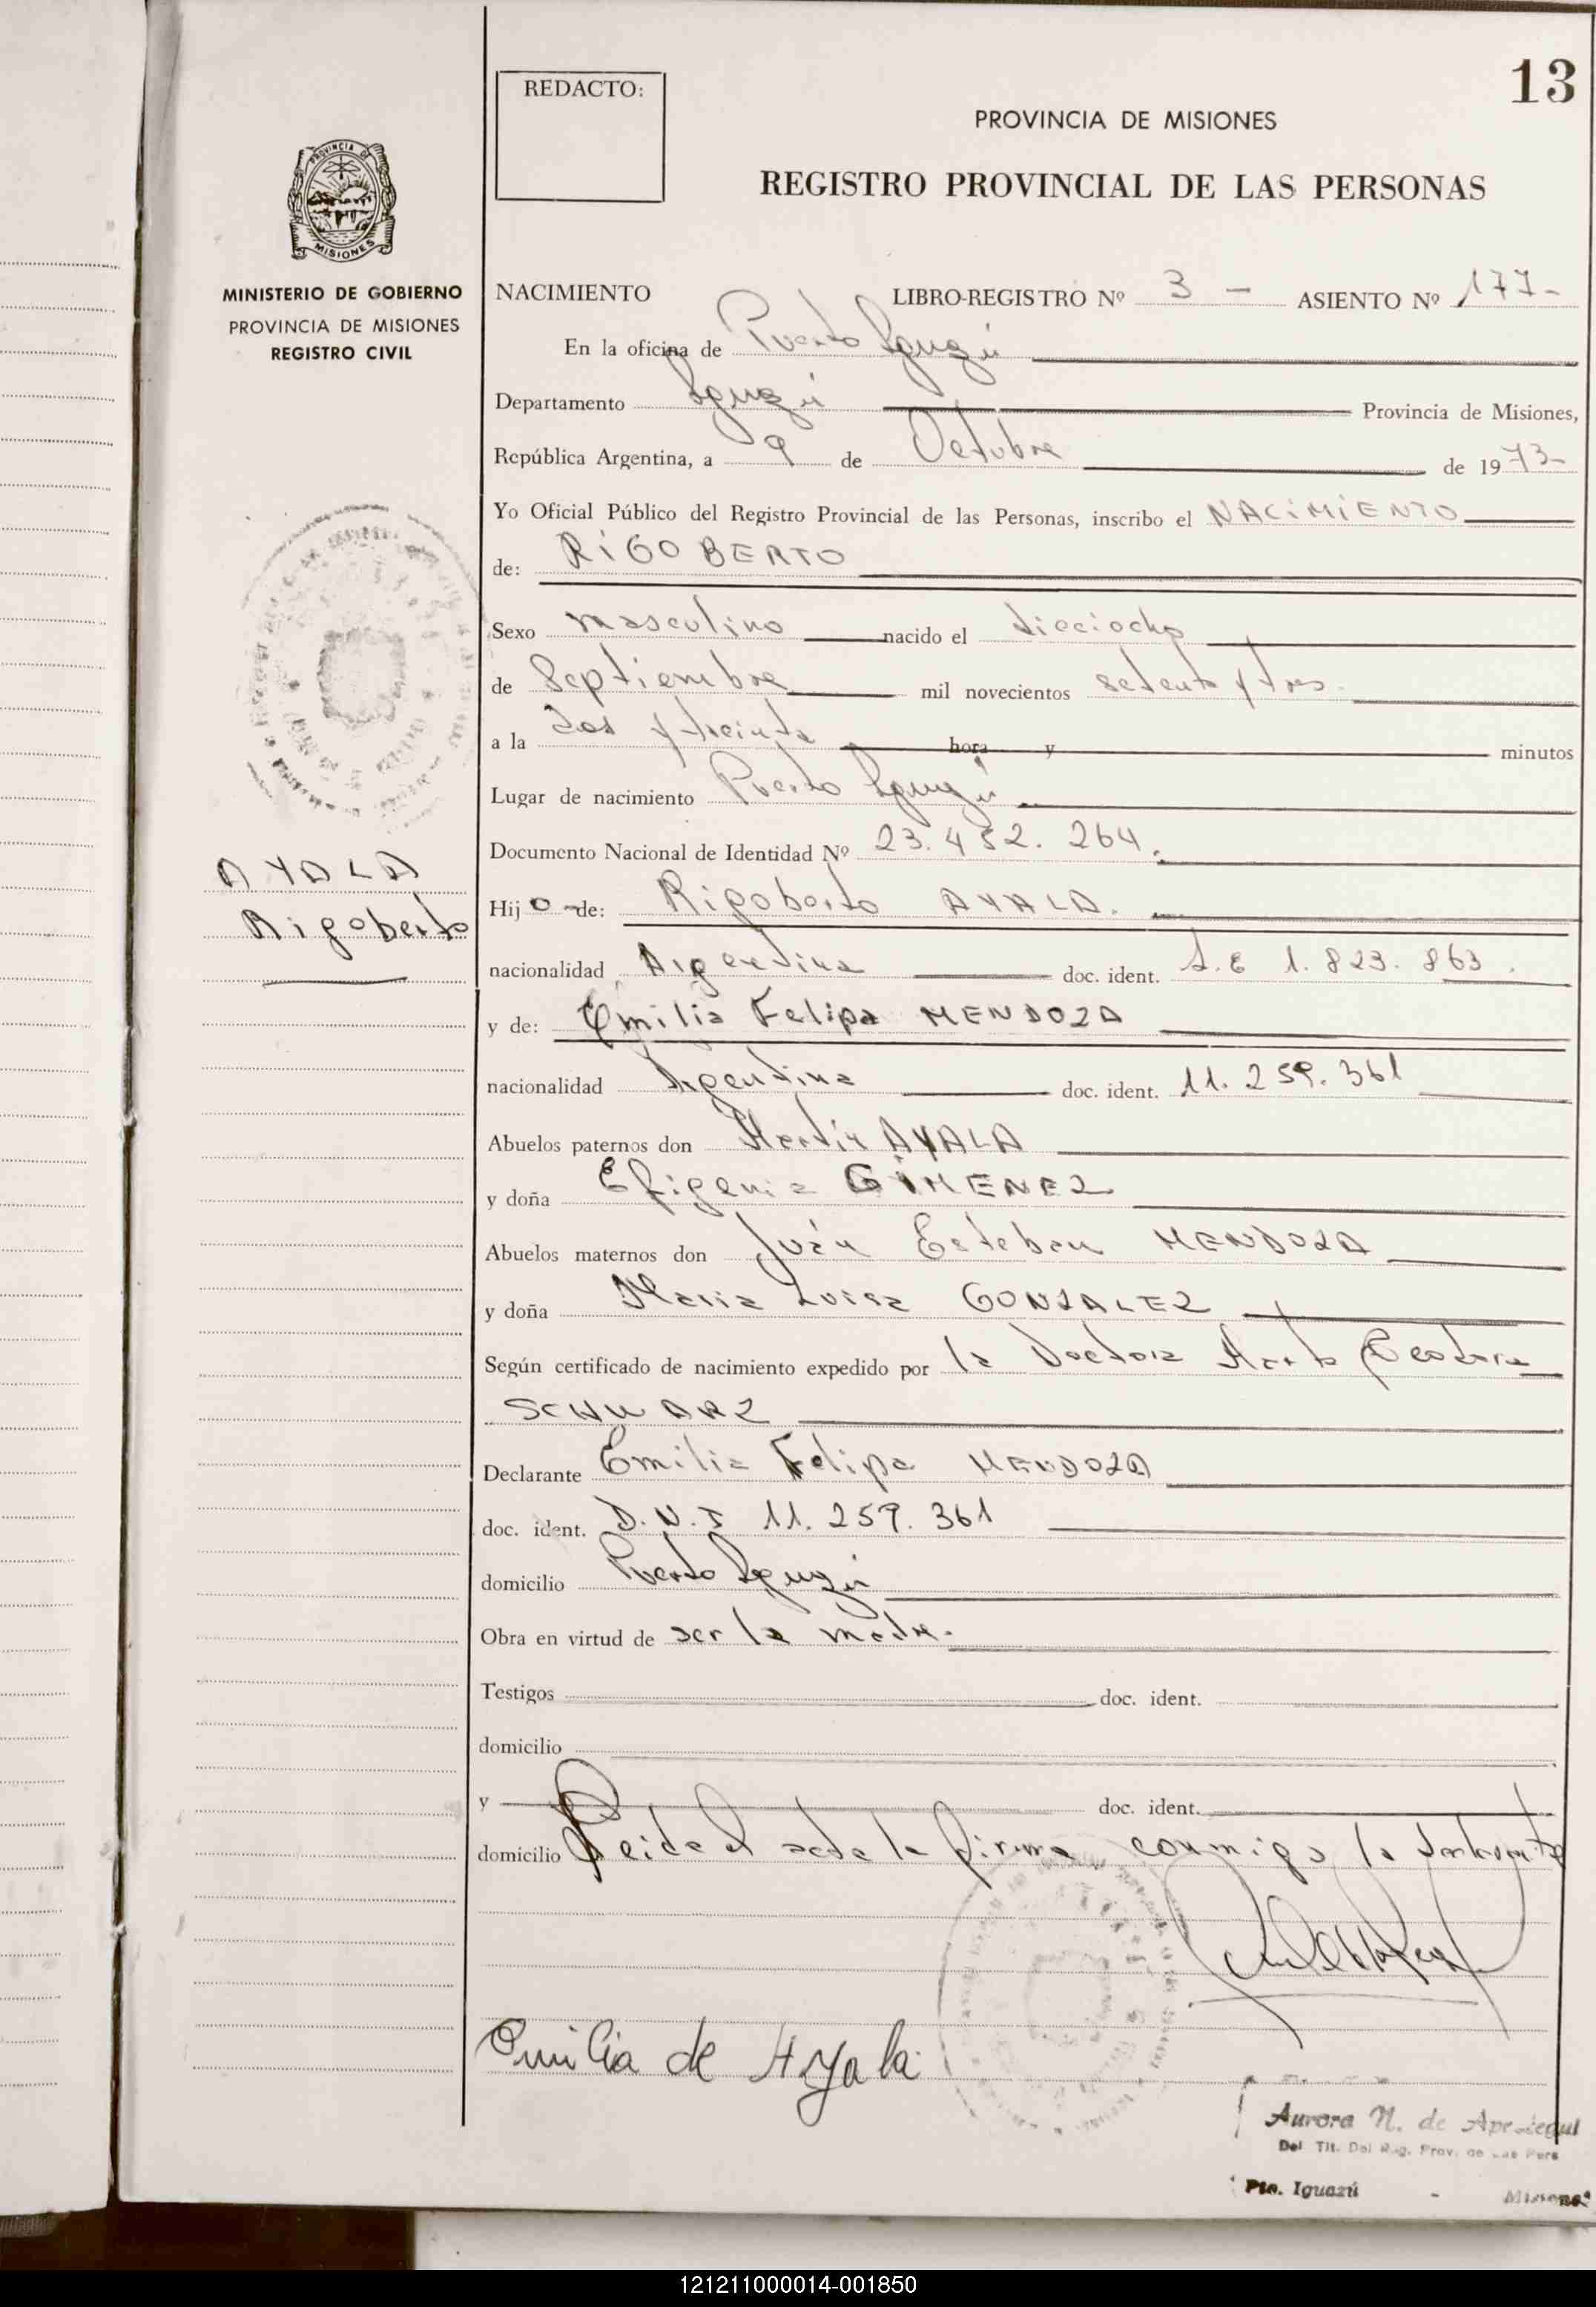 13
REDACTO:
PROVINCIA DE MISIONES
REGISTRO PROVINCIAL DE LAS PERSONAS
PROVINCIA DE
MISIONES
MINISTERIO DE GOBIERNO
PROVINCIA DE MISIONES
REGISTRO CIVIL
NACIMIENTO LIBRO-REGISTRO Nº 3 - ASIENTO Nº 177-
En la oficina de Puerto Iguazú
Departamento Iguazú Provincia de Misiones,
República Argentina, a 9 de Octubre de 1973-
Yo Oficial Público del Registro Provincial de las Personas, inscribo el NACIMIENTO
de: RIGOBERTO
Sexo masculino nacido el dieciocho
de Septiembre mil novecientos setenta y tres.
a la dos y treinta hora y minutos
Lugar de nacimiento Puerto Iguazú
Documento Nacional de Identidad Nº 23.452.264.
AYALA
Rigoberto
Hijo de: Rigoberto AYALA.
nacionalidad Argentina doc. ident. L.E 1.823.863.
y de: Emilia Felipa MENDOZA
nacionalidad Argentina doc. ident. 11.259.361
Abuelos paternos don Martín AYALA
y doña Efigenia GIMENEZ
Abuelos maternos don Juan Esteban MENDOZA
y doña Maria Luisa GONZALEZ
Según certificado de nacimiento expedido por la Doctora Marta Teodora
SCHWARZ
Declarante Emilia Felipa MENDOZA
doc. ident. D.N.I 11.259.361
domicilio Puerto Iguazú
Obra en virtud de ser la madre.
Testigos doc. ident.
domicilio
y doc. ident.
domicilio Leida el acta la firma conmigo la declarante
Emilia de Ayala
Aurora N. de
Del Tit. Del Reg. Prov. de Las Pers
Pto. Iguazú - Misiones
121211000014-001850